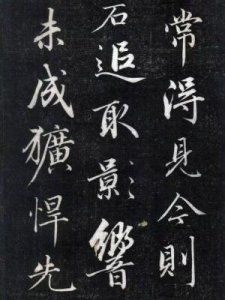 常得見今則
石追取影響
未成獷悍先